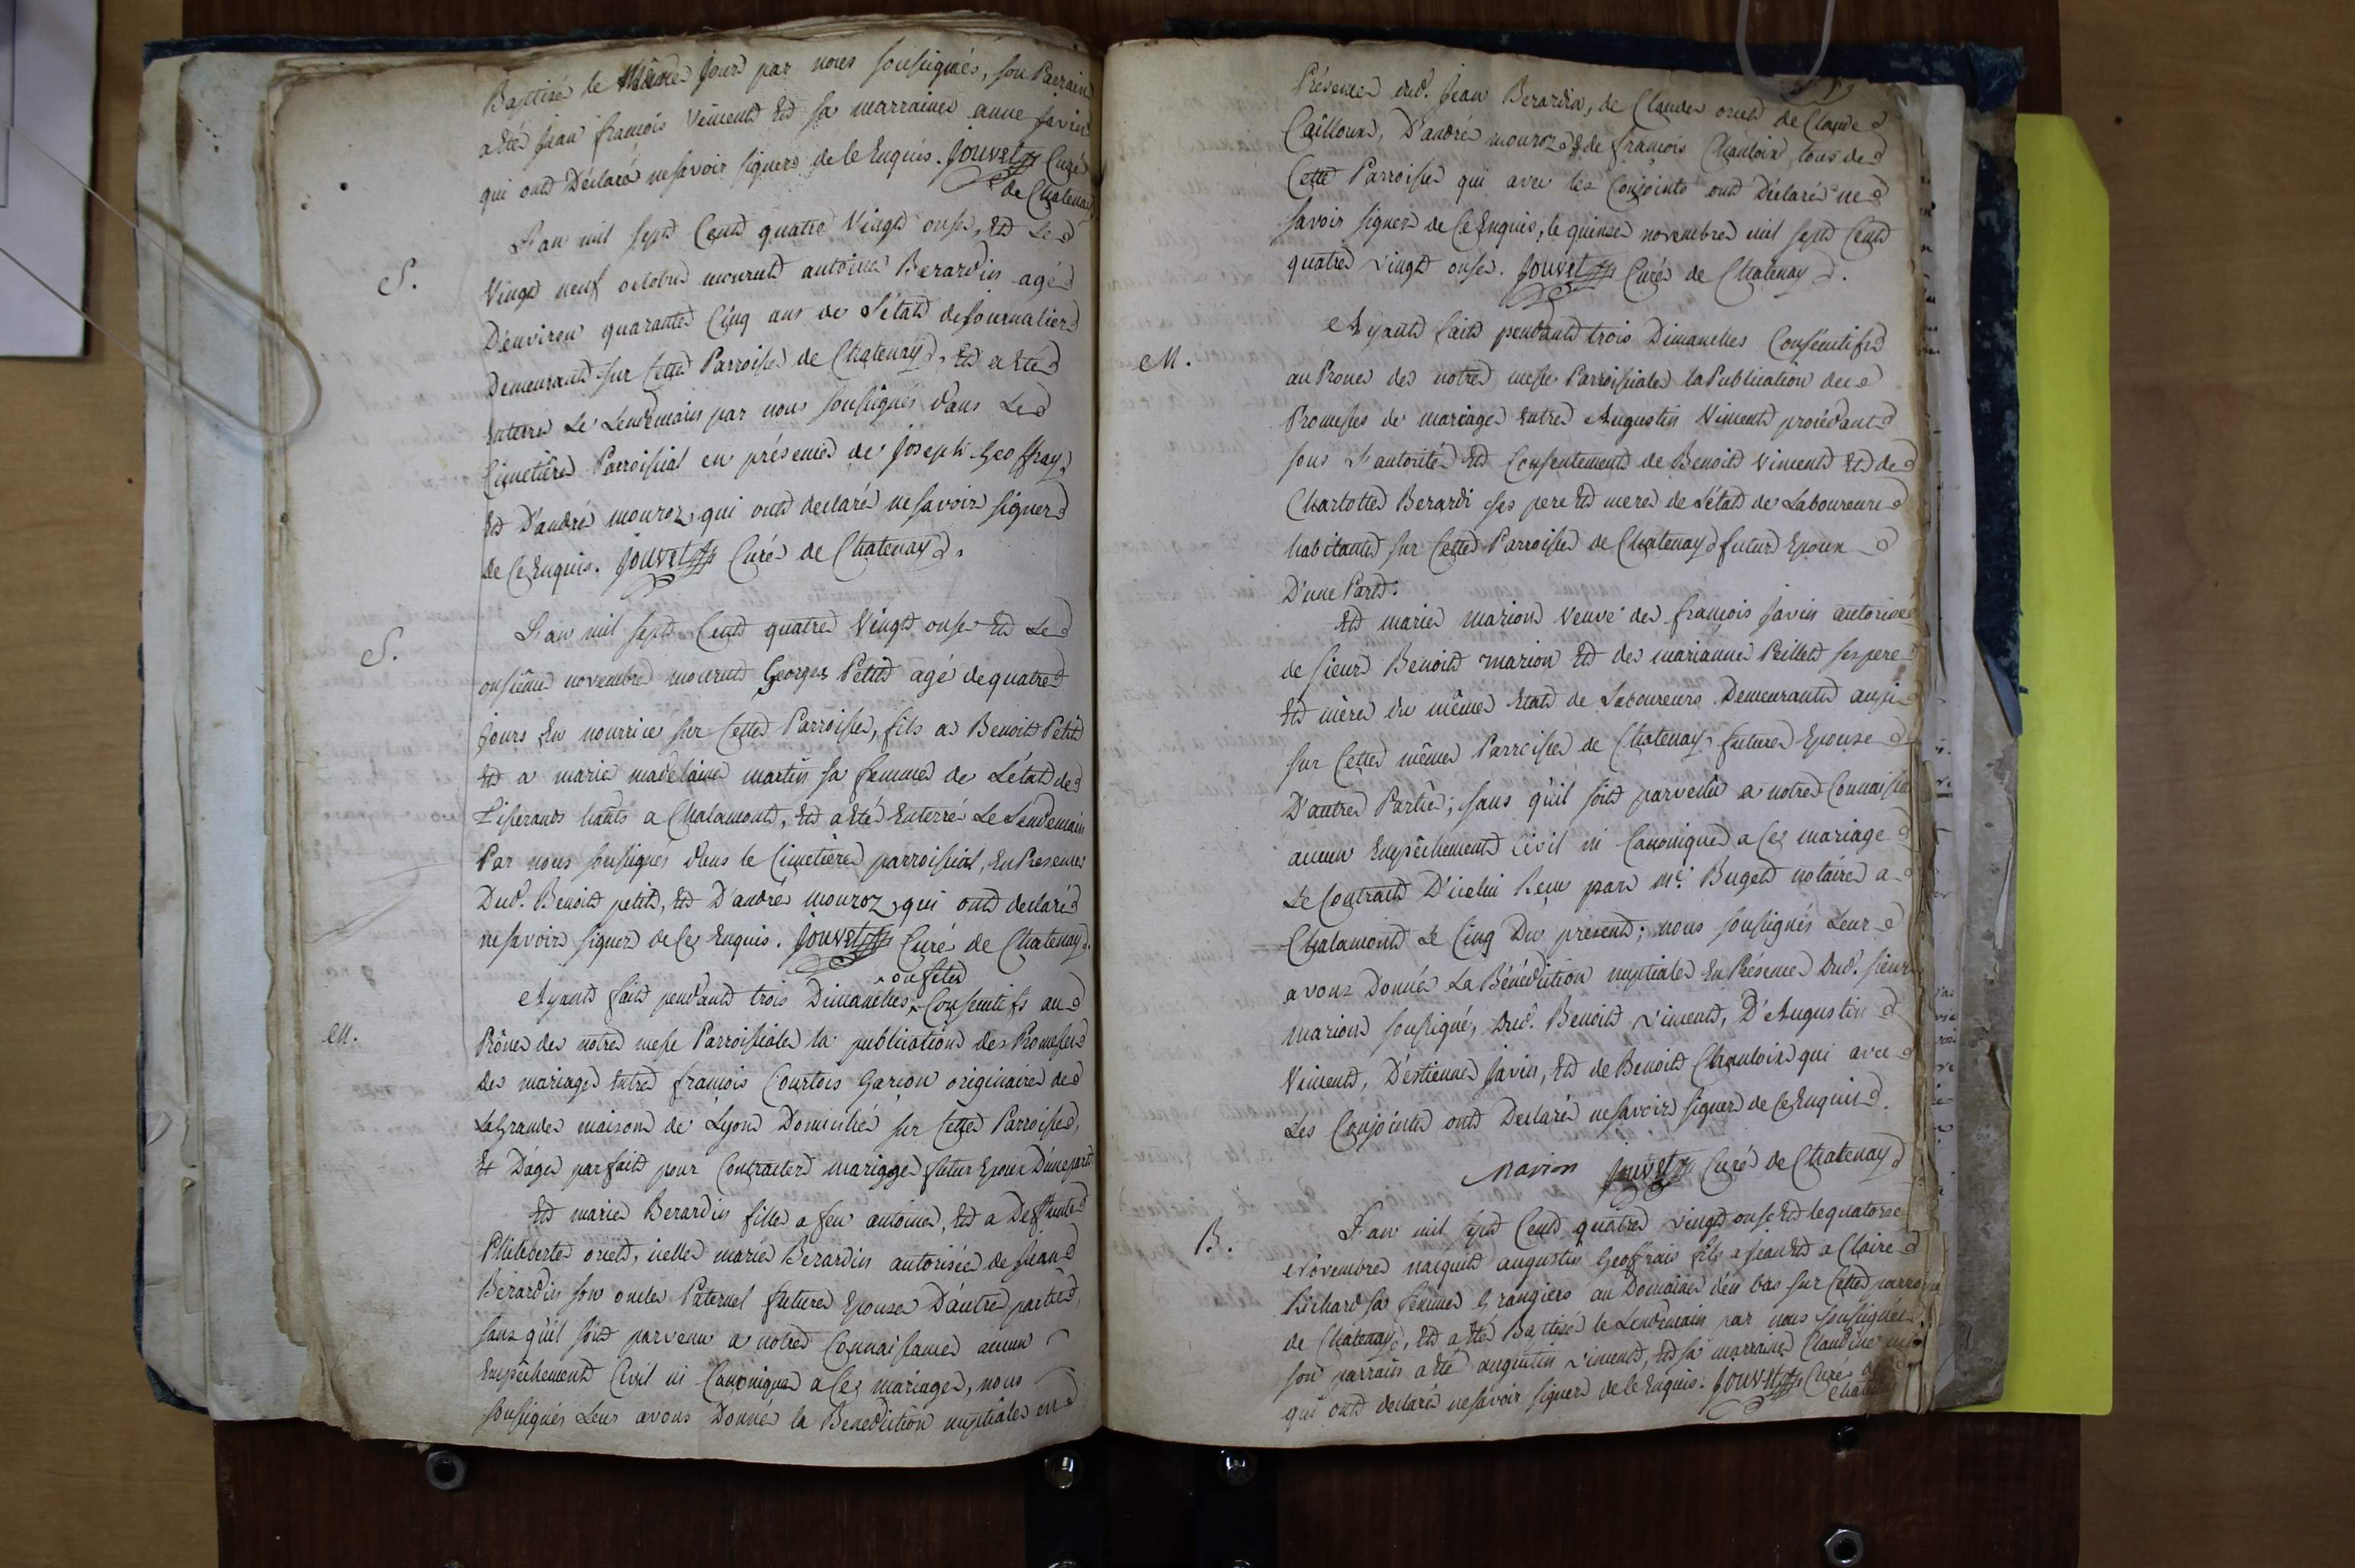 Baptisé le même jour par nous soussignés, son Parrain
a été jean françois Viment et sa marraine anne favin
qui ont Déclaré ne savoir signer de ce Enquis. Jouvet Curé
de Chatenay
S.
L'an mil sept Cent quatre Vingt onse, et Le
Vingt neuf octobre mourut antoine Berardin agé
D'environ quarante Cinq ans de L'état de journalier
Demeurant sur Cette Parroisse de Chatenay, et a été
Enterré Le Lendemain par nous soussignés dans Le
Cimetière Parroissial en présence de joseph Geoffray
et D'andré mouroz qui ont declaré ne savoir signer
de Ce Enquis. Jouvet Curé de Chatenay.
S.
L'an mil sept Cent quatre Vingt onse et Le
onsième novembre mourut Georges Petit agé de quatre
jours En nourrice sur Cette Parroisse, fils a Benoit Petit
et a marie madelaine martin sa femme de L'état de
Tisserands habts a Chalamont, et a été Enterré Le Lendemain
Par nous soussignés dans le Cimetière parroissial, En Presence
Dud. Benoit petit, et D'andré mouroz qui ont declaré
ne savoir signer de Ce Enquis. Jouvet Curé de Chatenay.
ou fetes
M.
Ayant fait pendant trois Dimanches Consecutifs au
Prône de notre messe Parroissiale la publication des Promesses
de mariage Entre françois Courtois Garçon originaire de
La Grande maison de Lyon Domicilié sur Cette Parroisse,
et D'âge parfait pour Contracter mariage futur Epoux D'une part
et marie Berardin fille a feu antoine, et a Deffunte
Philiberte oriet, icelle marie Berardin autorisée de jean
Berardin son oncle Paternel future Epouse D'autre partie,
sans qu'il soit parvenu a notre Connaissance aucun
Empêchement Civil ni Canonique a Ce mariage, nous
soussignés Leur avons Donné la Benediction nuptiale en
Présence dud. jean Berardin, de Claude oriet de Claude
Cailloux, D'andré mouroz & de françois Chanloix tous de
Cette Parroisse qui avec les Conjoints ont Déclaré ne
savoir signer de Ce Enquis, le quinse novembre mil sept Cent
quatre vingt onse. Jouvet Curé de Chatenay.
M.
Ayant fait pendant trois Dimanches Consécutifs
au Prone de notre messe Parroissiale la Publication de
Promesses de mariage Entre Augustin Viment procédant
sous L'autorité et Consentement de Benoit Viment et de
Charlotte Berardi ses pere et mere de L'état de Laboureurs
habitants sur Cette Parroisse de Chatenay futur Epoux
D'une Part.
et marie marion veuve de françois favin autorisée
de sieur Benoit marion et de marianne Peillet ses pere
et mère du même Etat de Laboureurs Demeurants aussi
sur Cette même Parroisse de Chatenay future Epouse
D'autre Partie; sans qu'il soit parvenu a notre Connaissa
aucun Empêchement Civil ni Canonique a Ce mariage
Le Contract D'icelui Reçu par me. Buget notaire a
Chalamont Le Cinq Du présent; nous soussignés Leur
avons Donné La Bénédiction nuptiale En Présence Dud. sieur
marion soussigné, Dud. Benoit viment, D'Augustin
Viment, D'estienne favin, et de Benoit Chanloix qui avec
Les Conjoints ont Declaré ne savoir signer de Ce Enquis.
Marion Jouvet Curé de Chatenay
B.
L'an mil sept Cent quatre vingt onse et le quatorse
Novembre naquit augustin Geoffrais fils a jean et a Claire
Richard sa femme Grangiers au Domaine d'en bas sur Cette parroisse
de Chatenay, et a été Baptisé le Lendemain par nous soussignés
son parrain a été augustin viment, et sa marraine Claudine
qui ont declaré ne savoir signer de Ce Enquis. Jouvet Curé de
Chatenay